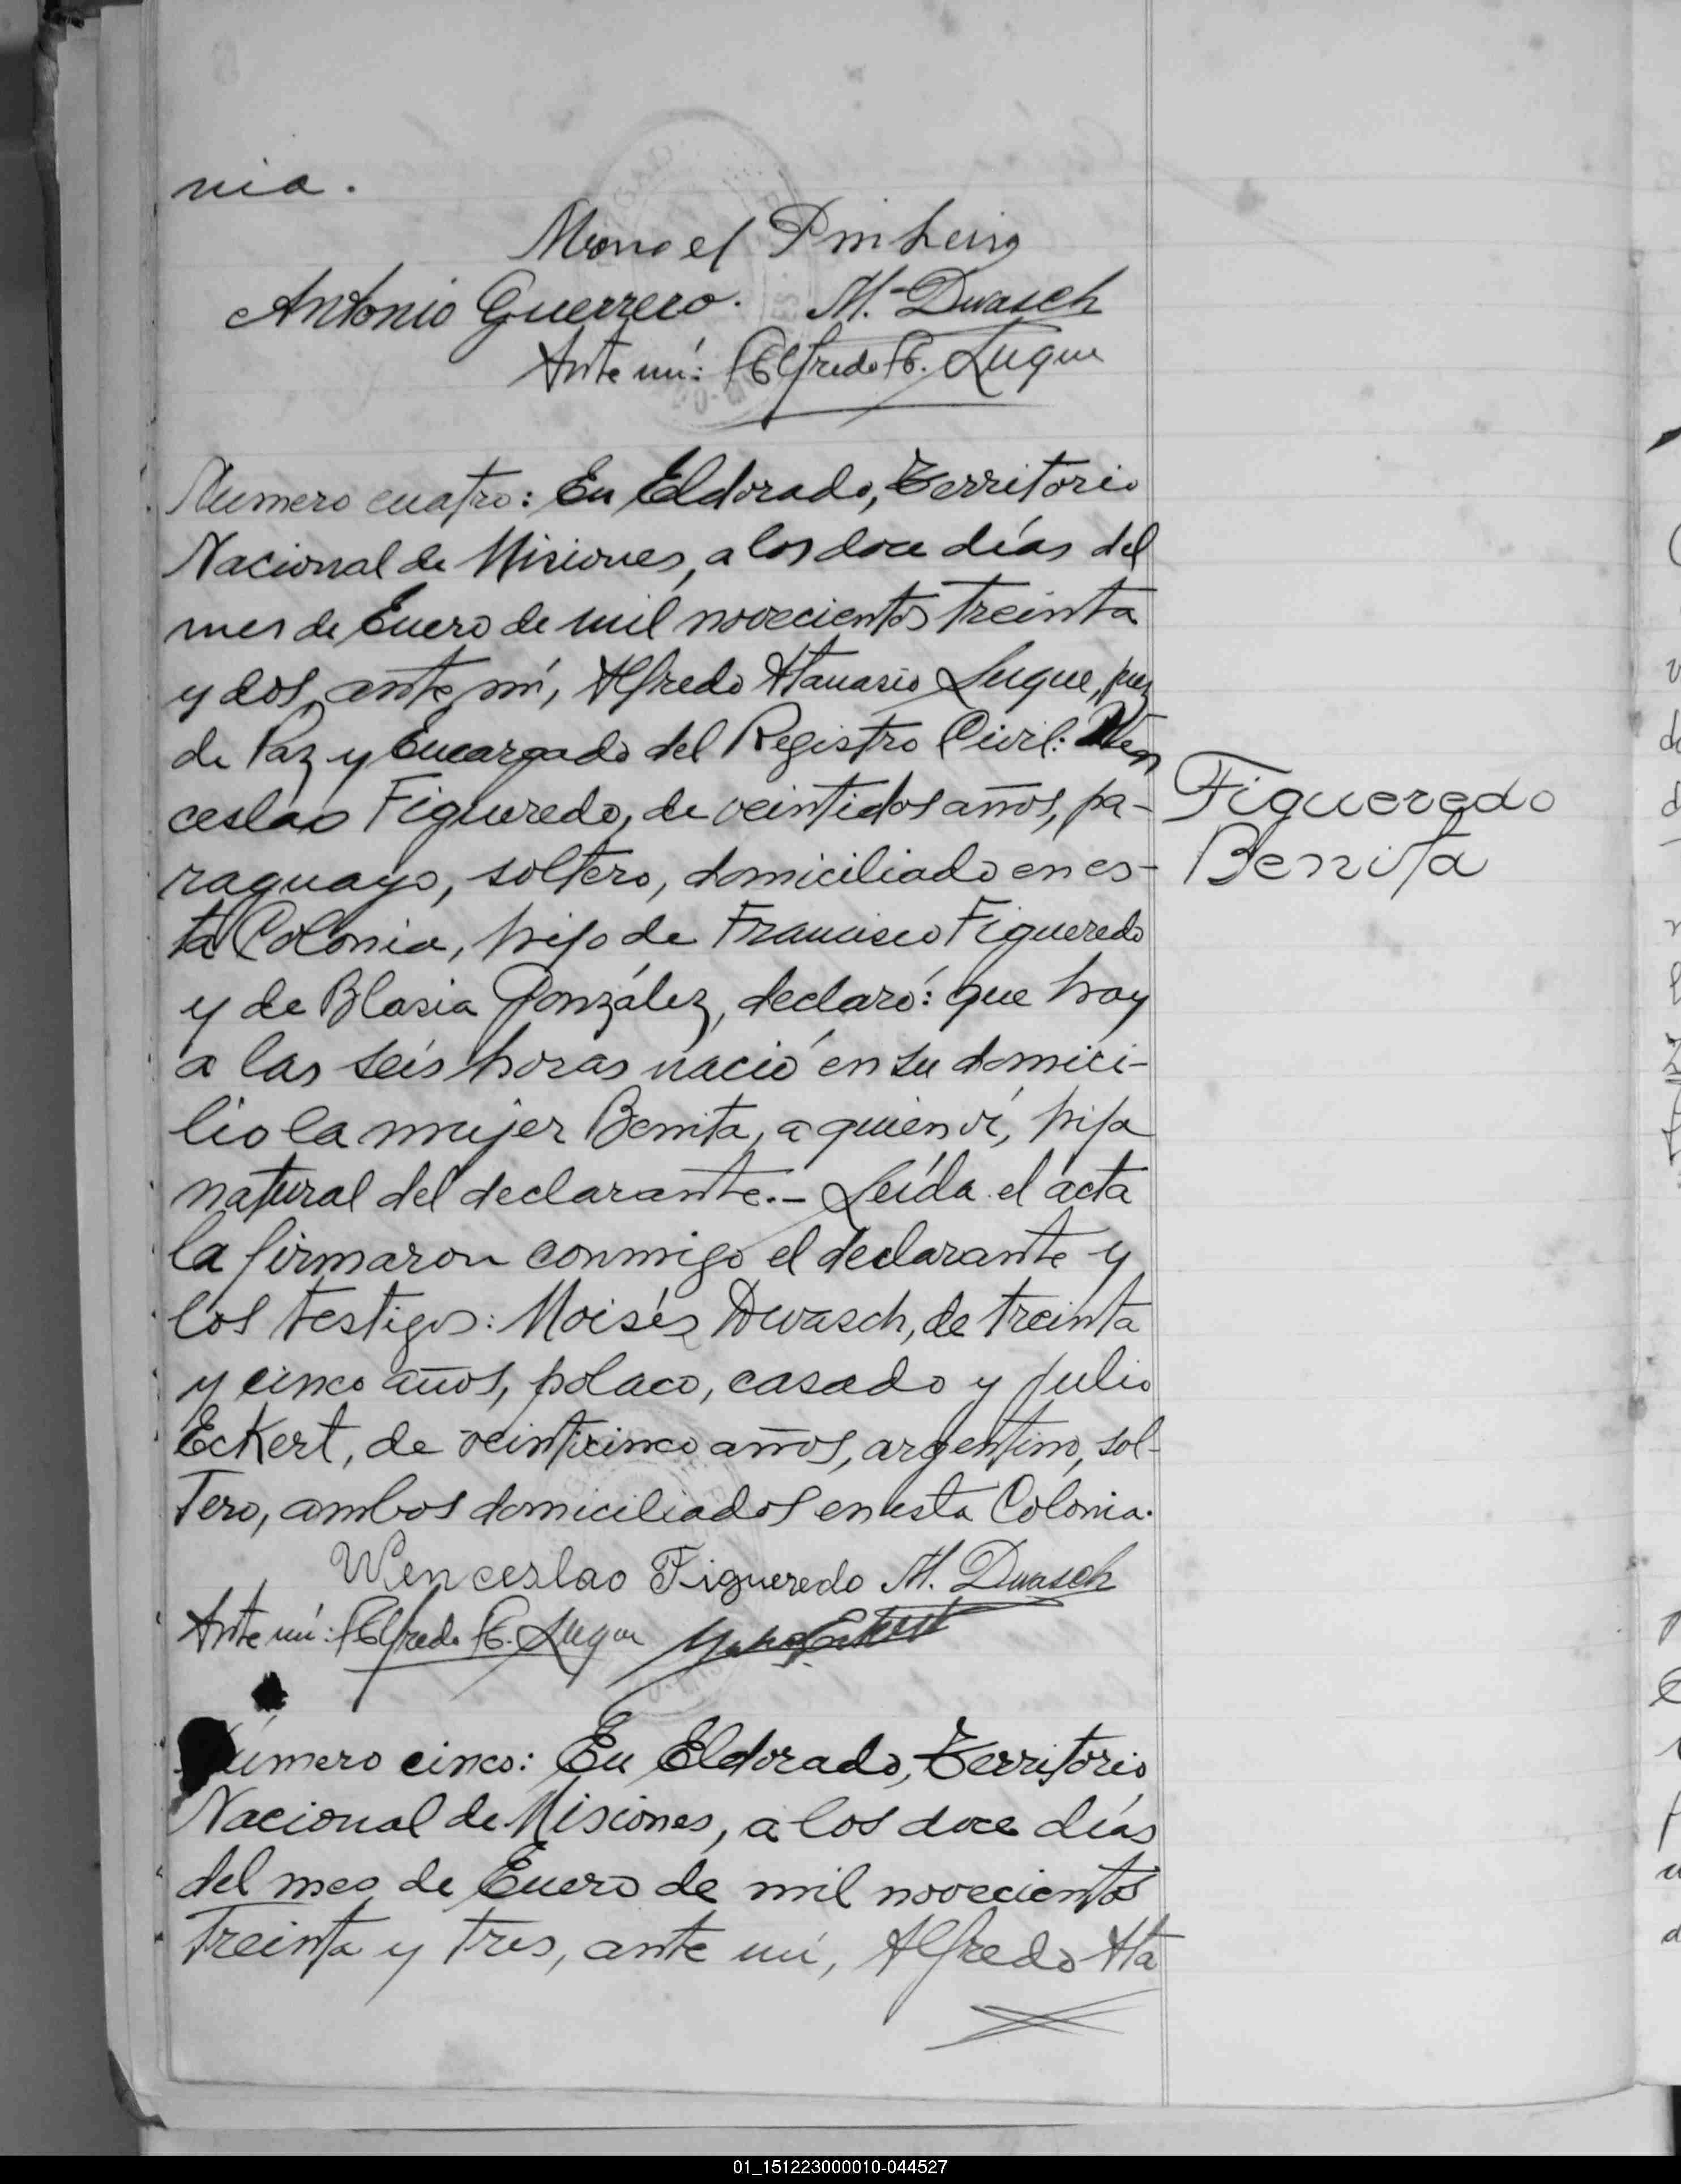 nia.
Manoel Pinheiro
Antonio Guerrero. M. Dwasch
Ante mí: Alfredo A. Luque
Numero cuatro: En Eldorado, Territorio
Nacional de Misiones, a los doce días del
mes de Enero de mil novecientos treinta
y dos, ante mí, Alfredo Atanasio Luque, juez
de Paz y Encargado del Registro Civil: Wen
ceslao Figueredo, de veintidos años, pa-
raguayo, soltero, domiciliado en es-
ta Colonia, hijo de Francisco Figueredo
y de Blasia González, declaró: que hoy
a las seis horas nació en su domici-
lio la mujer Benita, a quien ví, hija
natural del declarante.- Leída el acta
la firmaron conmigo el declarante y
los testigos: Moisés Dwasch, de treinta
y cinco años, polaco, casado y Julio
Eckert, de veinticinco años, argentino, sol-
tero, ambos domiciliados en esta Colonia.
Wenceslao Figueredo M. Dwasch
Ante mí: Alfredo A. Luque
Figueredo
Benita
Número cinco: En Eldorado, Territorio
Nacional de Misiones, a los doce días
del mes de Enero de mil novecientos
treinta y tres, ante mí, Alfredo Ata
01_151223000010-044527